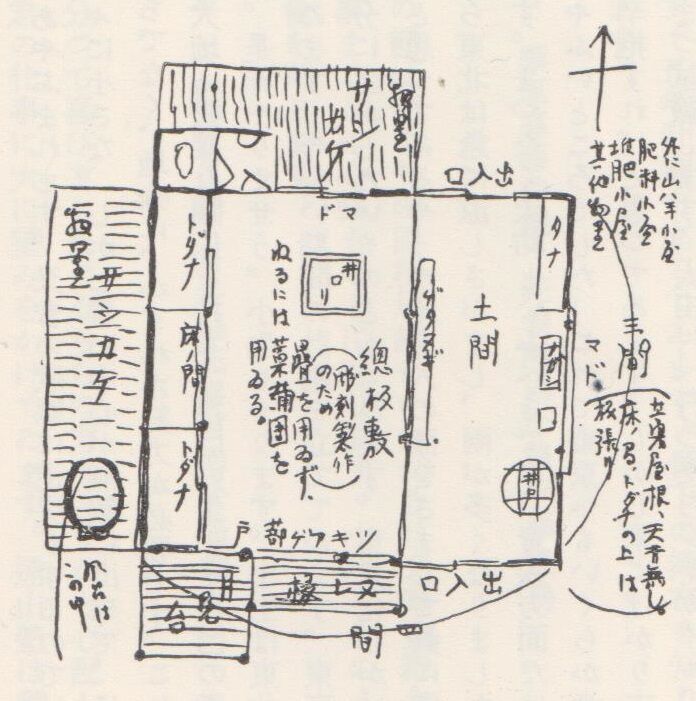 物置
サシカケ
出入口
外に山羊小屋
肥料小屋
堆肥小屋
其他物置
入
マド
トダナ
タナ
物置
サシカケ
イロリ
ゲタヌギ
土間
三間
マド
ナガシ
口
床ノ間
ねるには
藁蒲団を
用ゐる。
總板敷
(彫刻製作
のため)
畳を用ゐず、
トダナ
井戸
茅葺屋根、天井無し。
床ノ間、トダナの上は
板張り
風呂は
この中
戸
ツキアゲ蔀
ヌレ縁
月見台
出入口
四間